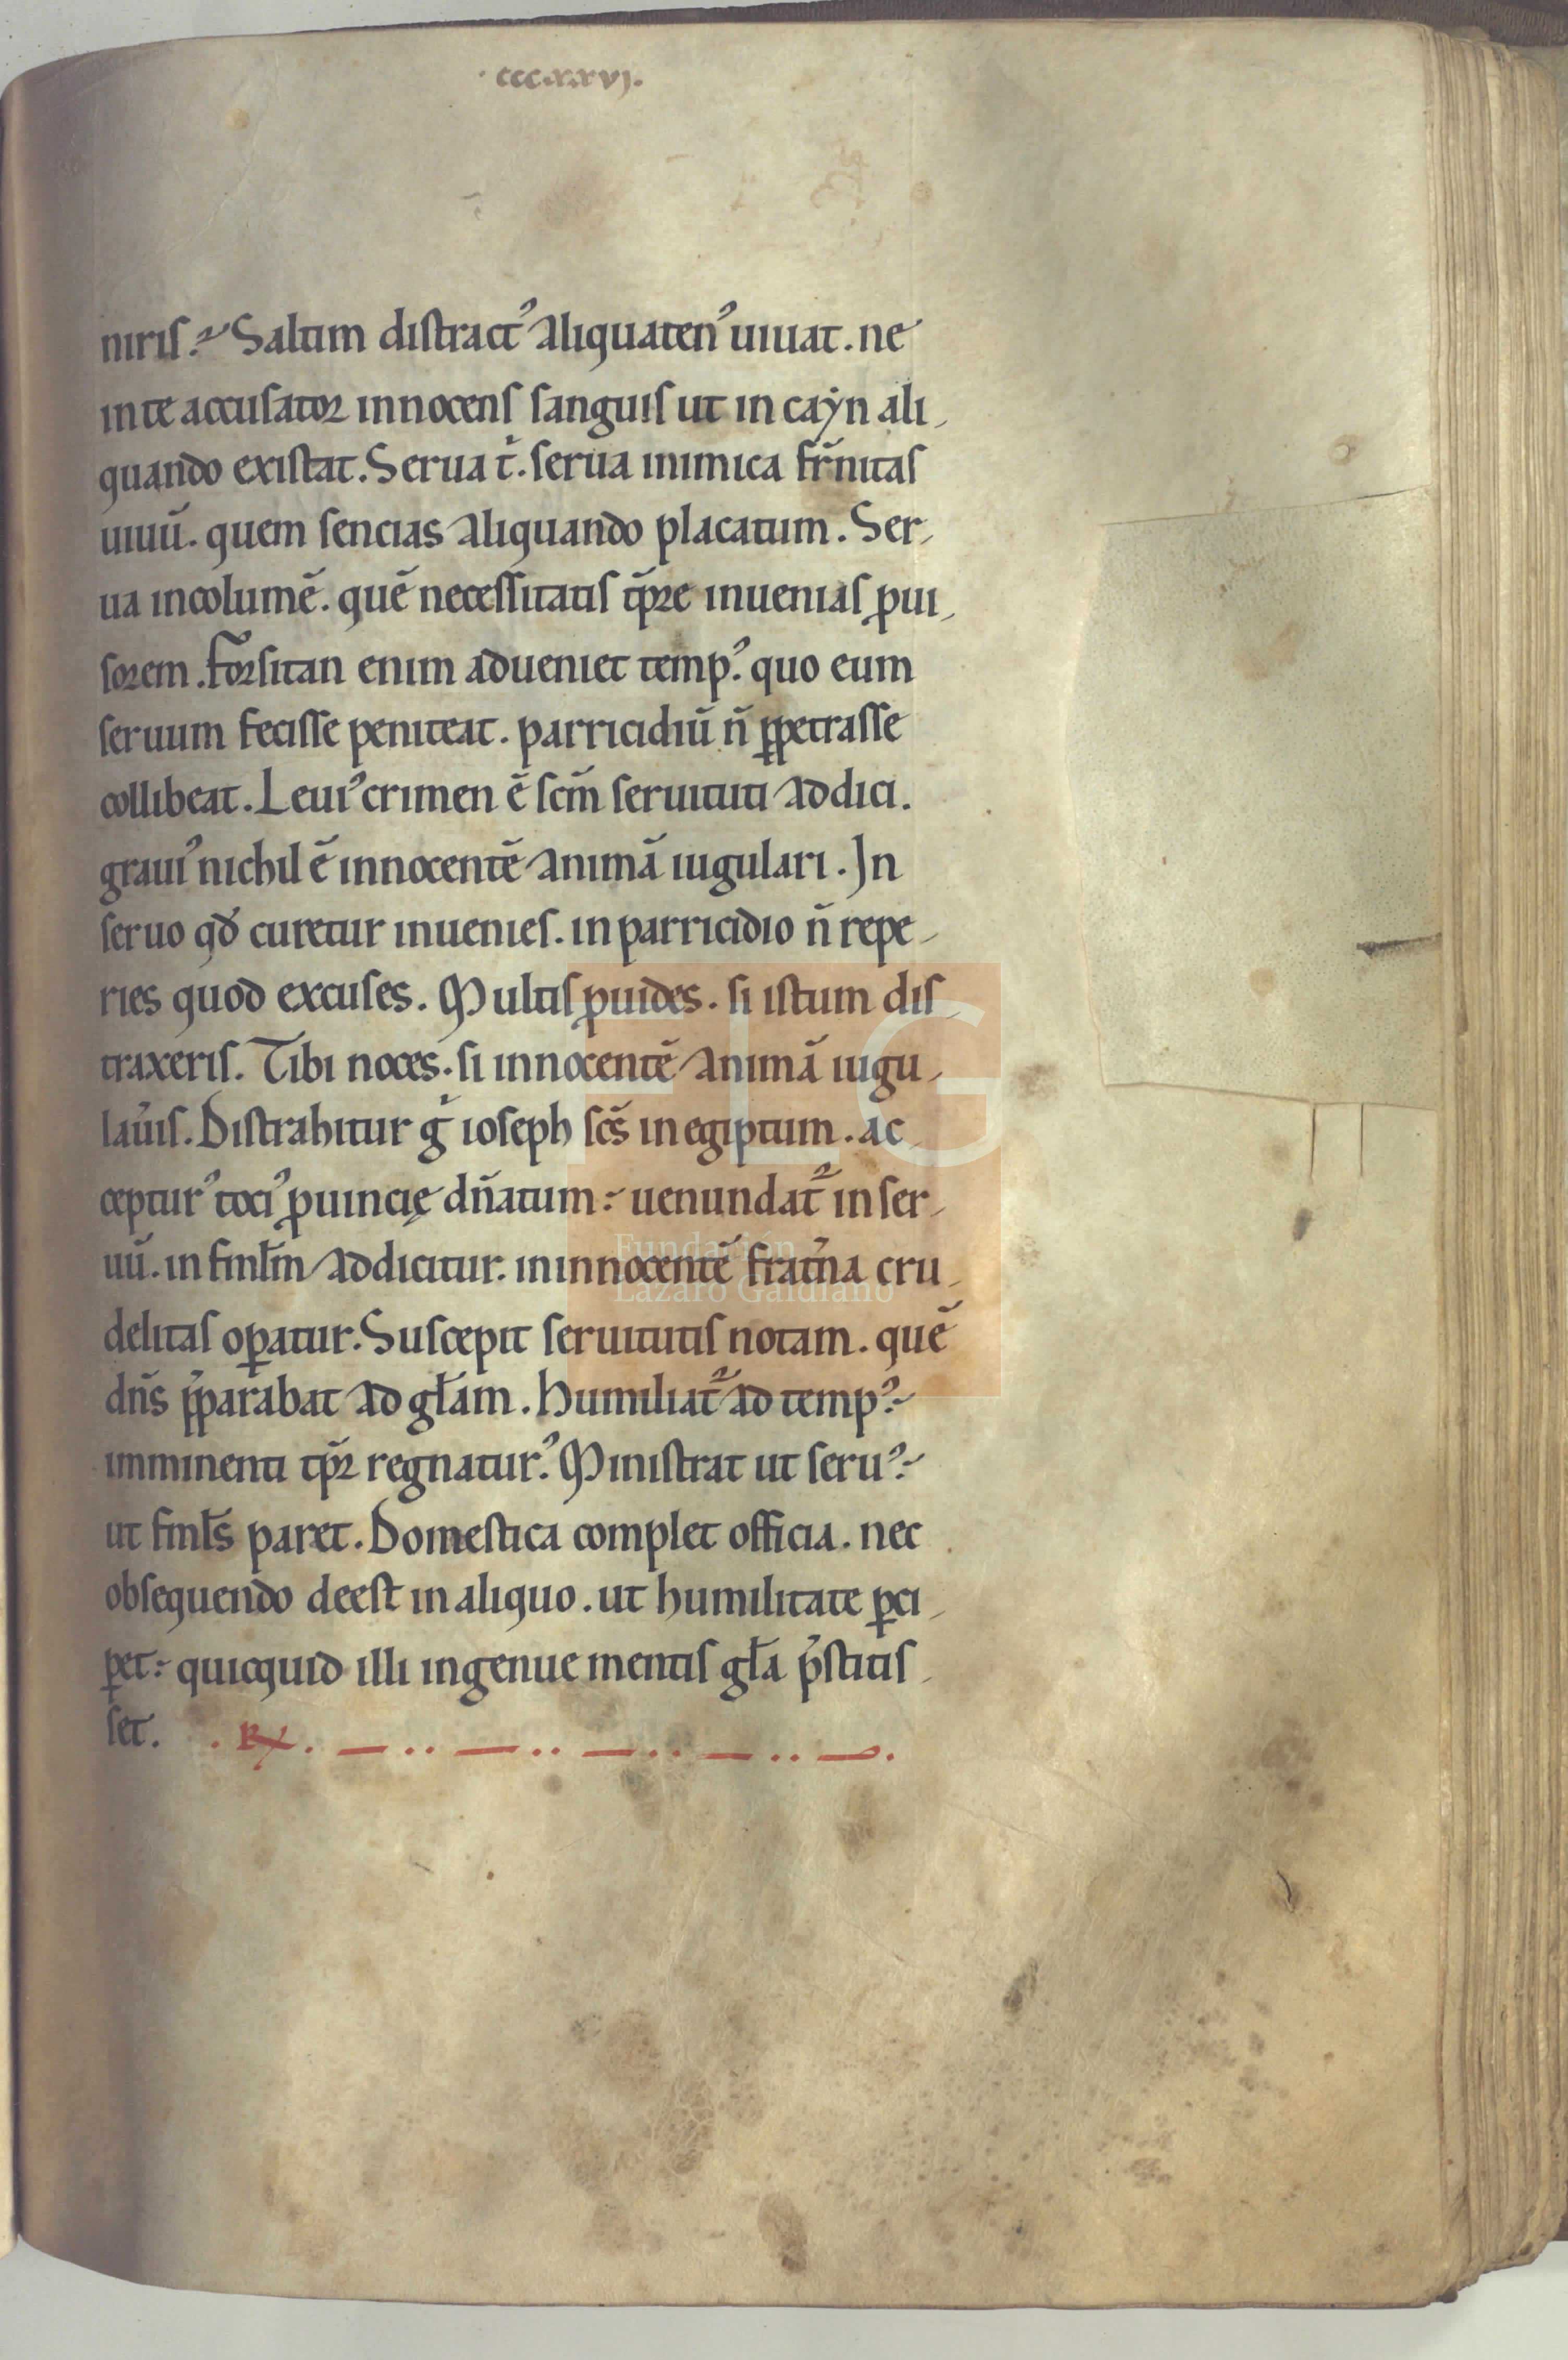 .cccxxvj.
niris.᷉ Saltim distractꝰ aliquatenꝰ uiuat. ne
in te accusator innocens sanguis ut in caẏn ali
quando existat. Serua t̄. serua inimica fr̄nitas
uiuū. quem sencias aliquando placatum. Ser
ua incolumē. quē necessitatis tp̄re inuenias ꝓui
sorem. Forsitan enim adueniet tempꝰ. quo eum
seruum fecisse peniteat. parricidiū n̄ ꝑpetrasse
collibeat. Leuiꝰ crimen ē scm̄ seruituti addici.
grauiꝰ nichil ē innocentē animā iugulari. In
seruo qd̄ curetur inuenies. in parricidio n̄ repe
ries quod excuses. Multis ꝓuides. si istum dis
traxeris. Tibi noces. si innocentē animā iugu
lau̾is. Distrahitur gͥ ioseph scs̄ in egiptum. ac
cepturꝰ tociꝰ ꝓuincię dn̄atum: uenundat᷑ in ser
uū. in fml̄m addicitur. in innocentē frat̾na cru
delitas oꝑatur. Suscepit seruitutis notam. quē
dn̄s p̄parabat ad gl̄am. Humiliat᷑ ad tempꝰ:
imminenti tp̄r regnaturꝰ. Ministrat ut seruꝰ:
ut fml̄s paret. Domestica complet officia. nec
obsequendo deest in aliquo. ut humilitate ꝑci
ꝑet: quicquid illi ingenue mentis gl̄a p̄stitis
set. . R̸.
FLG
Fundación
Lázaro Galdiano